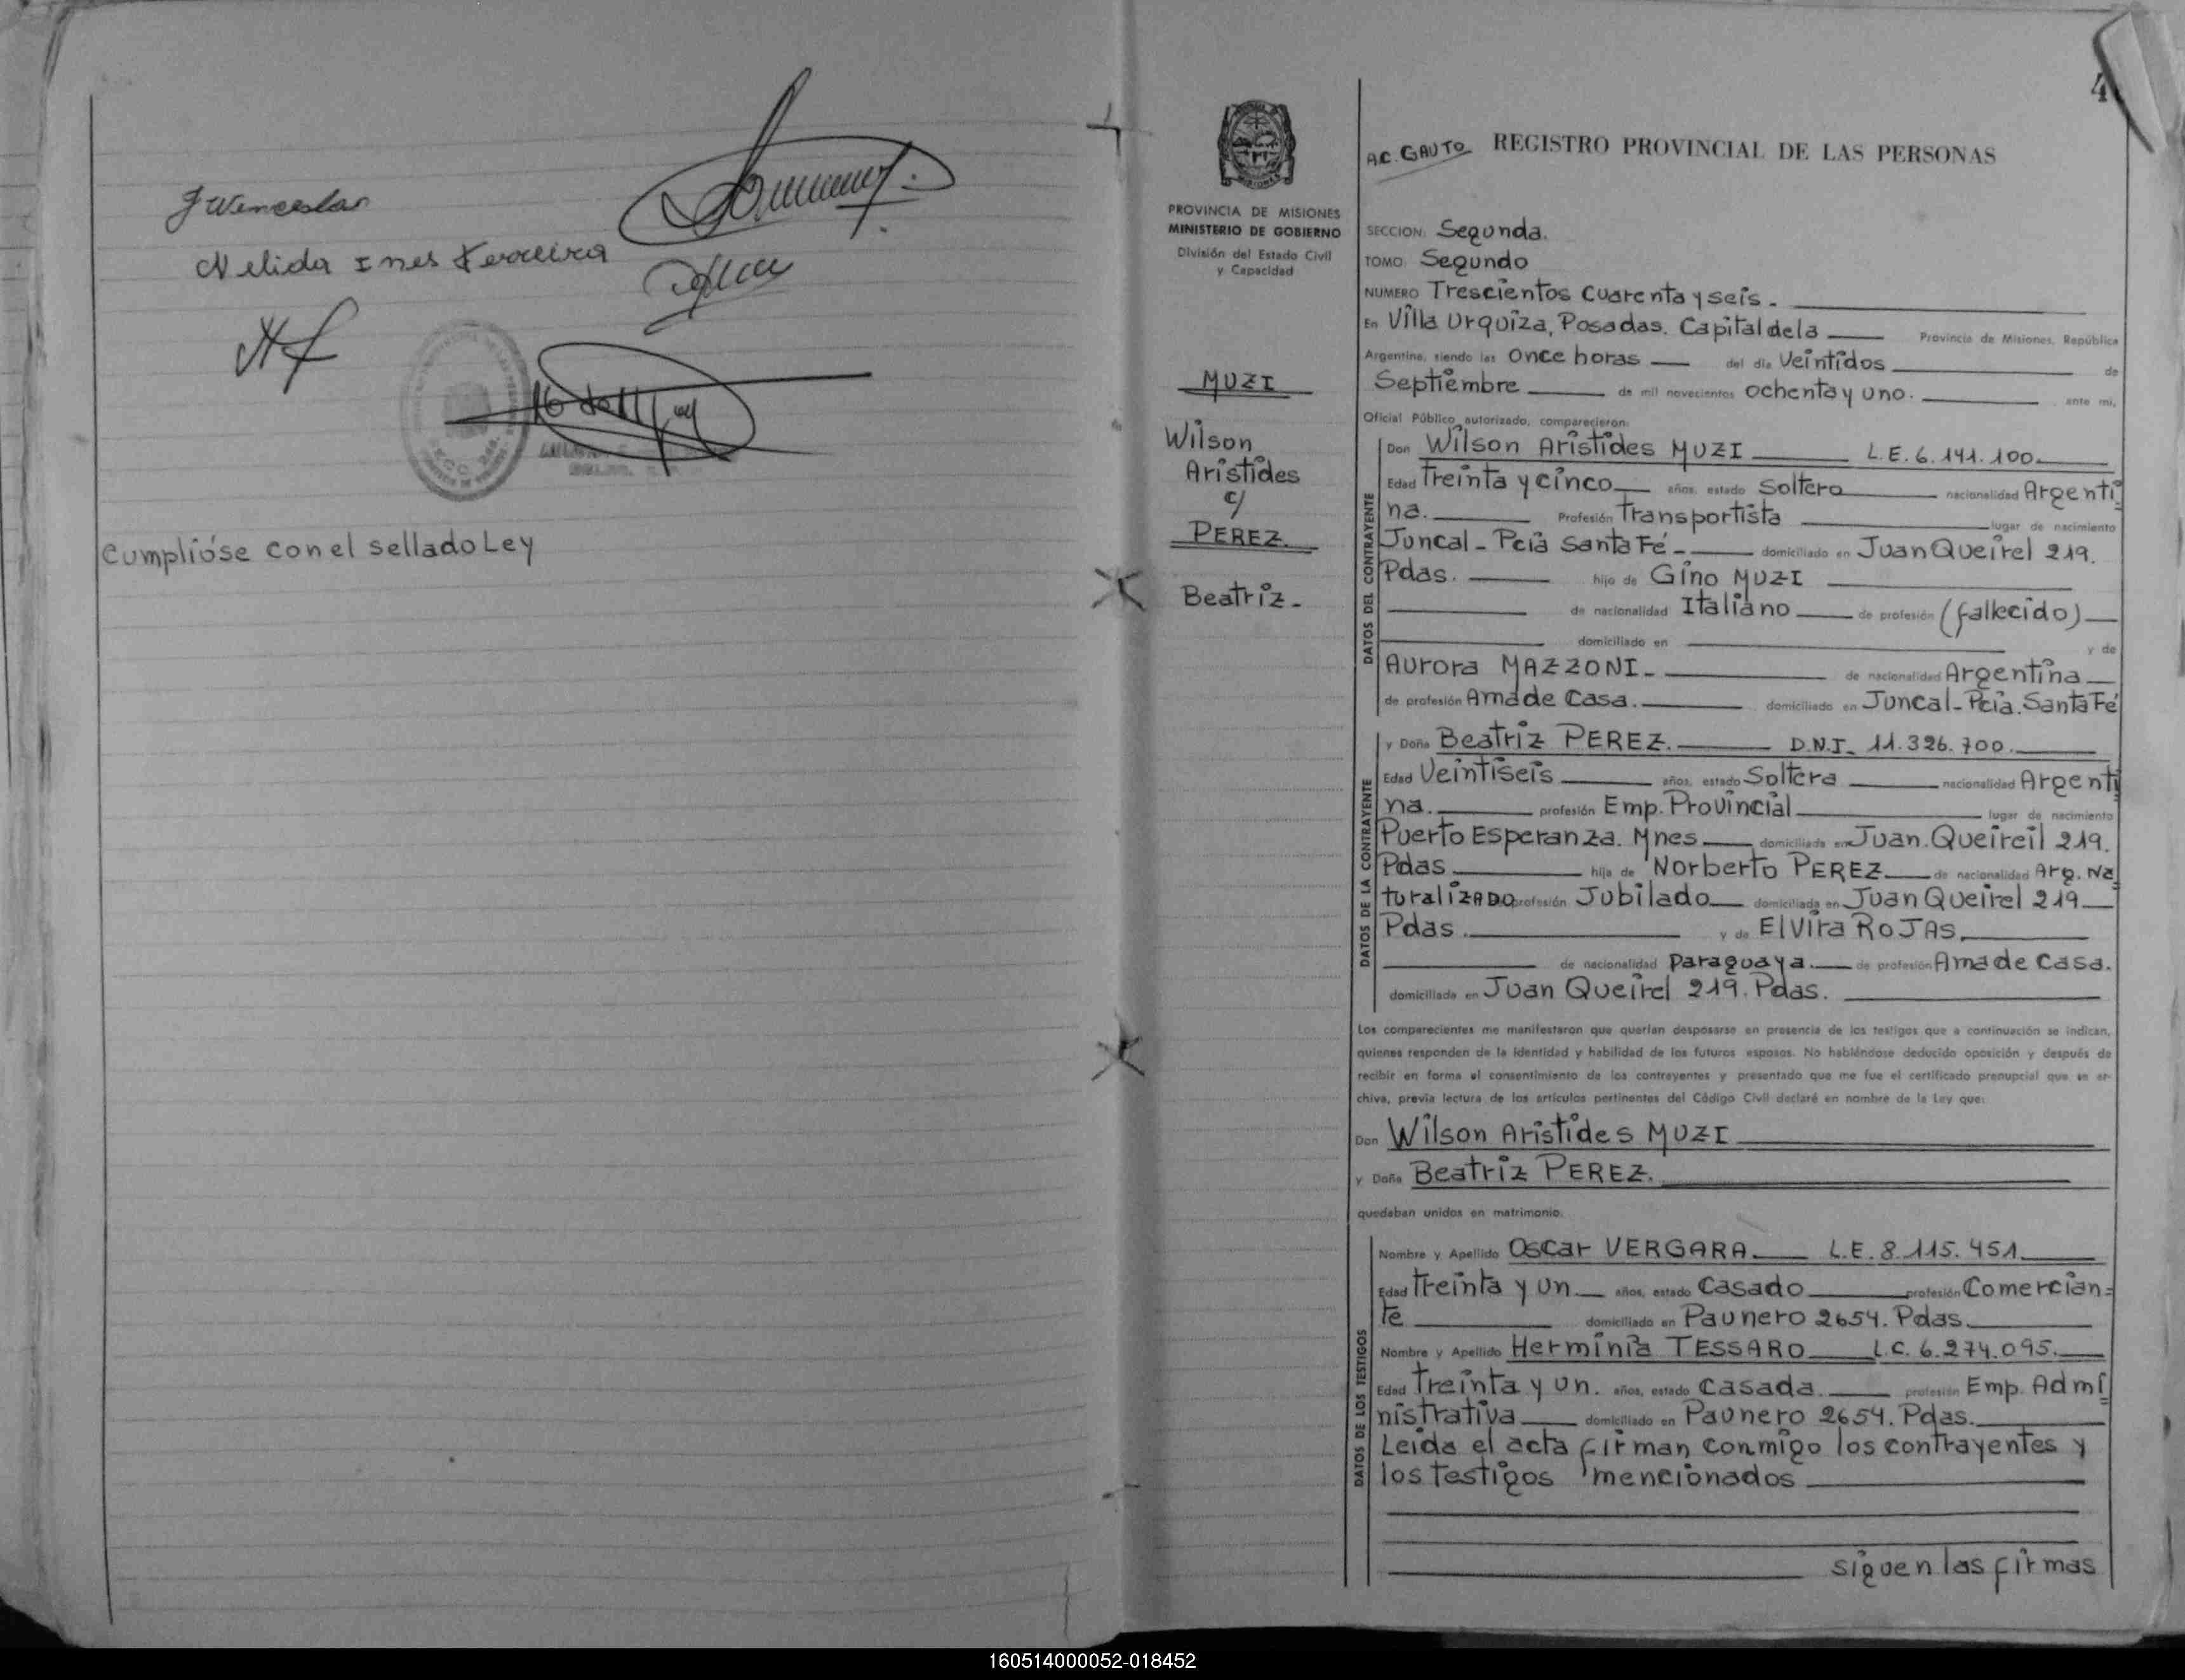 Nelida Ines Ferreira
Cumplióse con el sellado Ley
4
PROVINCIA DE MISIONES
MINISTERIO DE GOBIERNO
División del Estado Civil
y Capacidad
MUZI
Wilson
Aristides
c/
PEREZ
Beatriz-
A.C. GAUTO REGISTRO PROVINCIAL DE LAS PERSONAS
SECCION: Segunda.
TOMO: Segundo
NUMERO Trescientos Cuarenta y seis.
En Villa Urquiza, Posadas. Capital de la Provincia de Misiones, República
Argentina, siendo las Once horas del día Veintidos de
Septiembre de mil novecientos ochenta y uno. ante mi,
Oficial Público autorizado, comparecieron:
DATOS DEL CONTRAYENTE
Don Wilson Aristides MUZI L.E. 6.141.100.
Edad Treinta y cinco años, estado Soltero nacionalidad Argenti=
na. Profesión Transportista lugar de nacimiento
Juncal - Pcia Santa Fé- domiciliado en Juan Queirel 219.
Pdas. hijo de Gino MUZI
de nacionalidad Italiano de profesión (fallecido)
domiciliado en y de
Aurora MAZZONI. de nacionalidad Argentina
de profesión Ama de Casa. domiciliado en Juncal- Pcia. Santa Fé
DATOS DE LA CONTRAYENTE
y Doña Beatriz PEREZ. D.N.I. 11.326.700.
Edad Veintiseis años, estado Soltera nacionalidad Argenti
na. profesión Emp. Provincial lugar de nacimiento
Puerto Esperanza. Mnes domiciliada en Juan Queireil 219.
Pdas hija de Norberto PEREZ de nacionalidad Arg. Na
turalizADO profesión Jubilado domiciliado en Juan Queirel 219
Pdas. y de Elvira ROJAS.
de nacionalidad Paraguaya. de profesión Ama de Casa.
domiciliada en Juan Queirel 219. Pdas.
Los comparecientes me manifestaron que querían desposarse en presencia de los testigos que a continuación se indican,
quienes responden de la identidad y habilidad de los futuros esposos. No habiéndose deducido oposición y después de
recibir en forma el consentimiento de los contrayentes y presentado que me fue el certificado prenupcial que se ar-
chiva, previa lectura de los artículos pertinentes del Código Civil declaré en nombre de la Ley que:
Don Wilson Aristides MUZI
y Doña Beatriz PEREZ.
quedaban unidos en matrimonio.
DATOS DE LOS TESTIGOS
Nombre y Apellido Oscar VERGARA. L.E. 8.115.451
Edad Treinta y un años, estado Casado profesión Comercian=
te domiciliado en Paunero 2654. Pdas.
Nombre y Apellido Herminia TESSARO L.C. 6.274.095.
Edad Treinta y un. años, estado Casada. profesión Emp. Admi
nistrativa domiciliado en Paunero 2654. Pdas.
Leida el acta firman conmigo los contrayentes y
los testigos mencionados
siguen las firmas
160514000052-018452